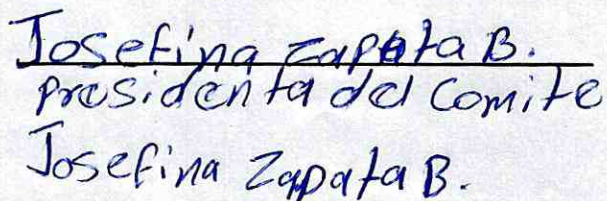 Josefina zapata B.
presidenta del Comite
Josefina Zapata B.